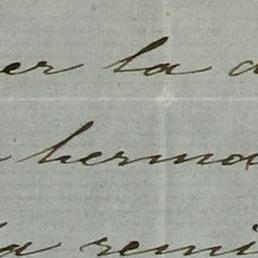 er la a
hermo
la remi